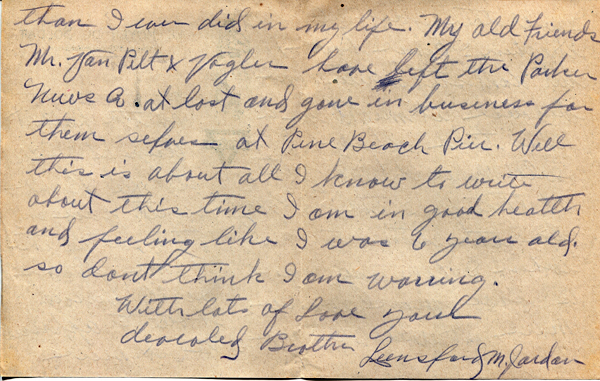 than I ever did in my life. My old Friends
Mr. Van Pilt & Vogler have left the Parker
News Co. at last and gone in business for
them selves at Pine Beach Pier. Well
this is about all I know to write
about this time I am in good health
and feeling like I was 6 years old.
so dont think I am worring.
With lots of Love your
devoted Brother
Lunsford M. Jordan